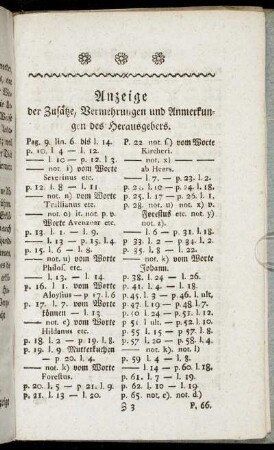 Anzeige
der Zusätze, Vermehrungen und Anmerkun-
gen des Herausgebers.
Pag. 9. lin. 6. bis l. 14.
p. 10. l. 4 — l. 12.
— l. 10 — p. 12. l. 3.
— not. i) vom Worte
Severinus etc.
p. 12. l. 8 — l. 11.
— not. n) vom Worte
Trallianus etc.
— not. o) it. not. p. v.
Worte Avenzoar etc.
p. 13. l. 1. — l. 9.
— l. 13 — p. 15. l. 4.
p. 15. l. 6 — l. 8.
— not. u) vom Worte
Philos. etc.
— l. 13. — l. 14.
p. 16. l. 1. vom Worte
Aloysius — p. 17. l. 6
p. 17. l. 7. vom Worte
Humen — l. 13.
— not. e) vom Worte
Hildanus etc.
p. 18. l. 2 — p. 19. l. 8.
p. 19. l. 9. Mutterkuchen
— p. 20. l. 4.
— not. k) vom Worte
Forestus.
p. 20. l. 5 — p. 21. l. 9.
p. 21. l. 13 — l. 20.
P. 22. not. s) vom Worte
Kircheri.
— not. x) —
ab Heers.
— l. 7. — p. 23. l. 2.
p. 24. l. 10 — p. 24. l. 18.
p. 25. l. 17 — p. 26. l. 1.
p. 28. not. u) not. x) v.
Forestus etc. not. y)
not. z).
— l. 6 — p. 31. l. 18.
p. 33. l. 2 — p. 34. l. 2.
p. 35. l. 1 — l. 18.
— not. k) vom Worte
Johann.
p. 38. l. 24 — l. 26.
p. 41. l. 4 — l. 18.
p. 45. l. 3 — p. 46. l. ult.
p. 47. l. 19 — p. 49. l. 2.
p. 51. l. 12 — p. 52. l. 10.
p. 55. l. 15 — p. 57. l. ult.
p. 57. l. 20 — p. 58. l. 4.
— not. k) not. l)
p. 59. l. 4 — l. 8.
— l. 14 — p. 60. l. 18.
p. 61. l. 7 — l. 19.
p. 62. l. 10 — l. 19.
p. 65. not. c) not. d.)
Z 3
P. 66.